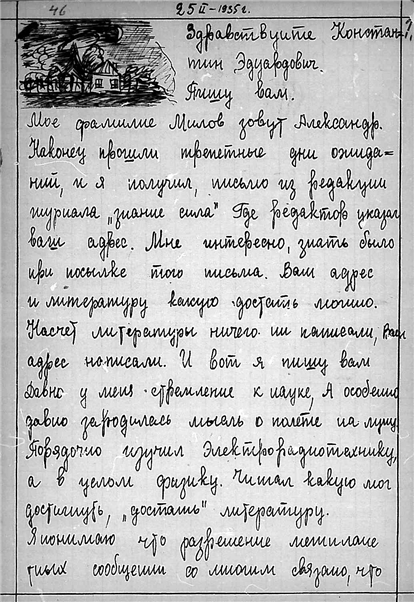 46 25 II - 1935 г.
Здравствуите Констан-
тин Эдуардович.
Пишу вам.
Мое фамилие Милов зовут Александр.
Наконец прошли трепетные дни ожида=
ний, и я получил, письмо из редакции
журнала „знание сила" Где редактов указал
ваш адрес. Мне интересно, знать было
при посылке того письма. Ваш адрес
и литературу какую достать можно.
Насчет литературы ничего ни написали,
адрес написали. И вот я пишу вам
Давно у меня стремление к науке, А особенно
давно зародилась мысль о полете на луну
Порядочно изучил Электрорадиотехнику,
а в целом физику. Читал какую мог
достигнуть, „достать" литературу.
Я понимаю что разрешение межплане
тных сообщении со многим связано, что